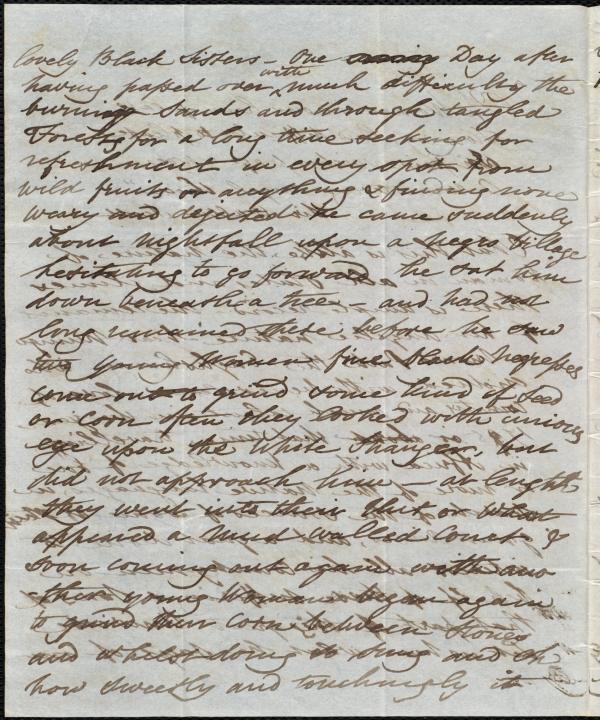 lovely Black Sisters – One Day after
having passed over with much difficulty the
burning Sands and through tangled
Forests, for a long time seeking for
refreshment in every spot from
wild fruits or anything & finding none
weary and dejected he came suddenly
about nightfall upon a Negro Village
hesitating to go forward he sat him
down beneath a tree – and had not
long remained there before he saw
two young Women fine black Negresses
come out to grind some kind of Seed
or corn they looked with curious
eye upon the White Stranger, but
did not approach him – at length
they went into their Hut or what
appeared a Mud Walled Court &
soon coming out again with ano
-ther young Woman began again
to grind their Corn between Stones
and whilst doing it sung and oh
how sweetly and touchingly it